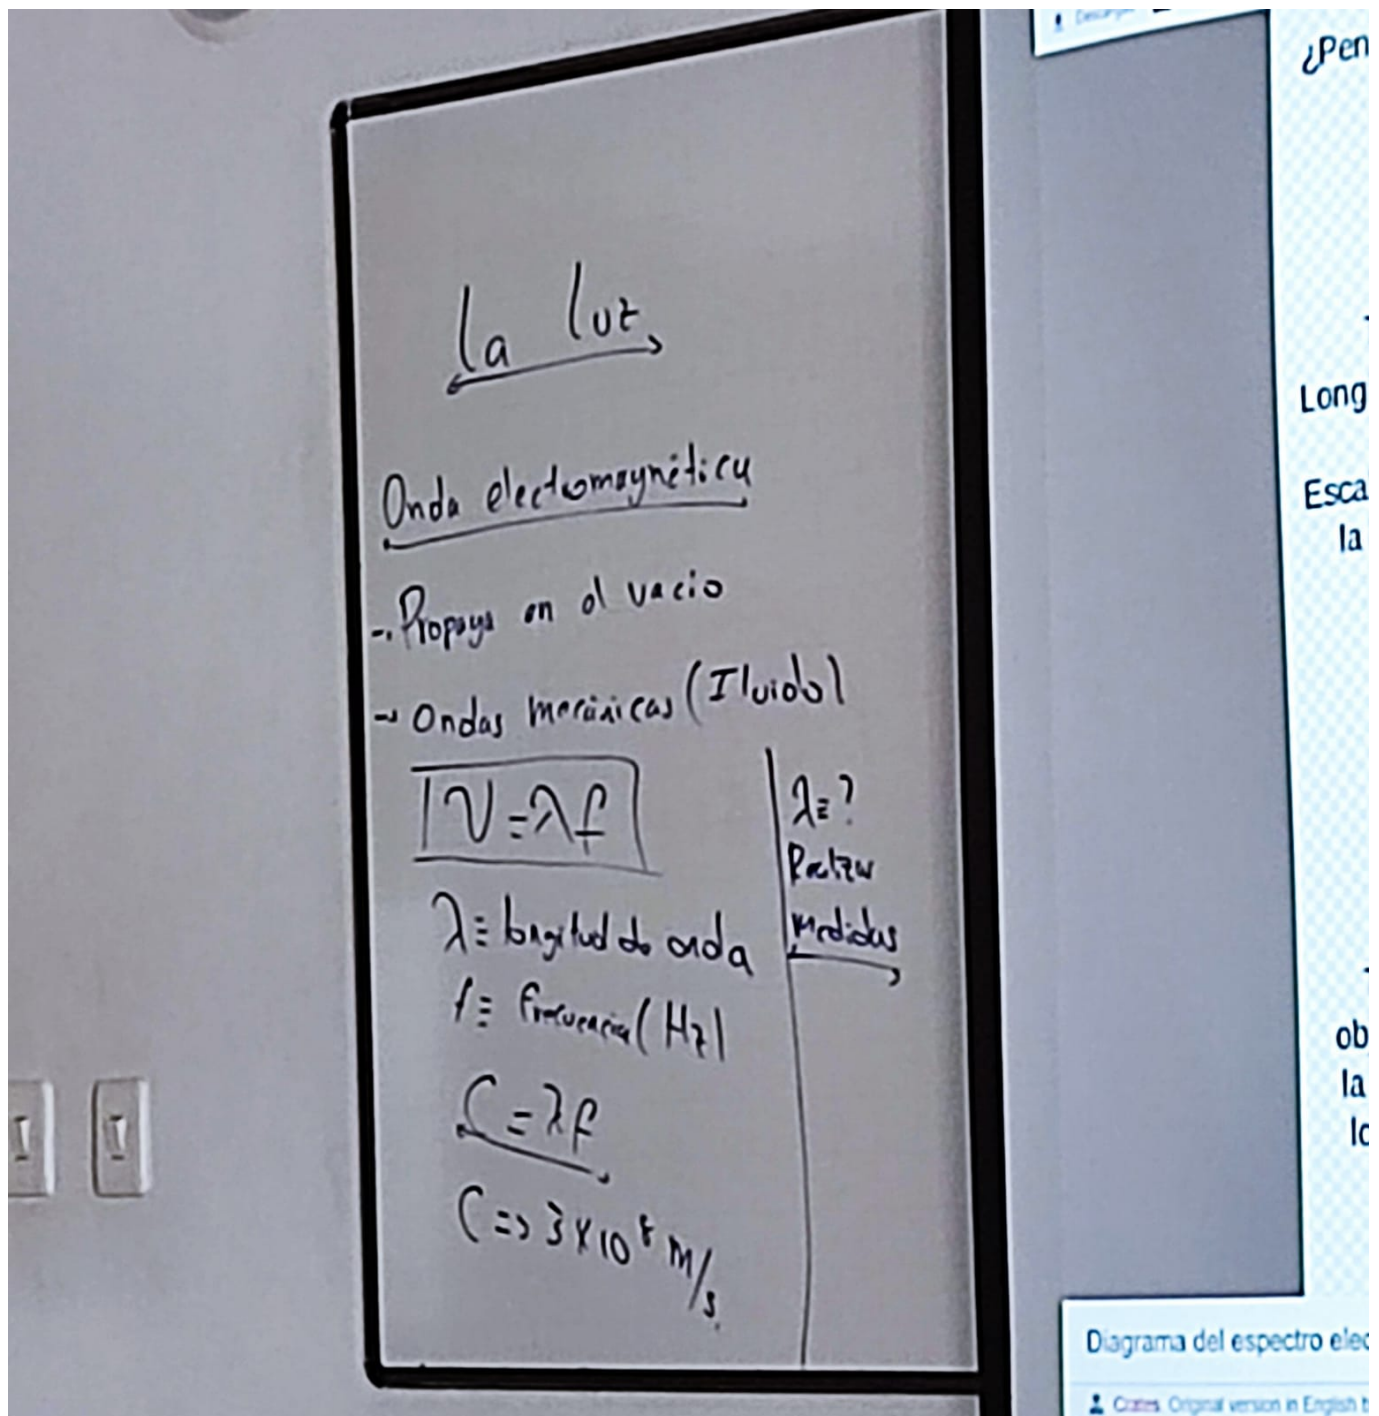 La luz
Onda electromagnética
-. Propaga en el vacio
→ Ondas mecánicas (Fluido)
V=λf
λ≡ longitud de onda
f≡ frecuencia (Hz)
C=λf
C=> 3×10⁸ m/s
λ=?
Realizar
medidas
¿Pen
Long
Esca
la
ob
la
lo
Diagrama del espectro elec
Original version in English b